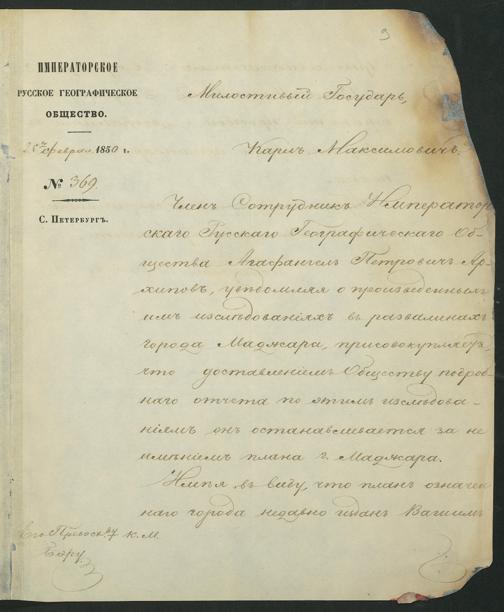 9
ИМПЕРАТОРСКОЕ
РУССКОЕ ГЕОГРАФИЧЕСКОЕ
ОБЩЕСТВО.
Февраля 1850 г.
№ 369
С. Петербургъ.
Милостивый Государь,
Карлъ Максимовичъ.
Членъ Сотрудникъ Император-
скаго Русскаго Географическаго Об-
щества Агафангелъ Петровичъ Ар-
хиповъ, увѣдомляя о произведенныхъ
имъ изслѣдованіяхъ въ развалинахъ
города Маджара, присовокупляетъ,
что доставленіемъ Обществу подроб-
наго отчета по этимъ изслѣдова-
ніямъ онъ останавливается за не
имѣніемъ плана г. Маджара.
Имѣя въ виду, что планъ означен
наго города недавно изданъ Вашимъ
Его Превосх. К. М.
Бэру